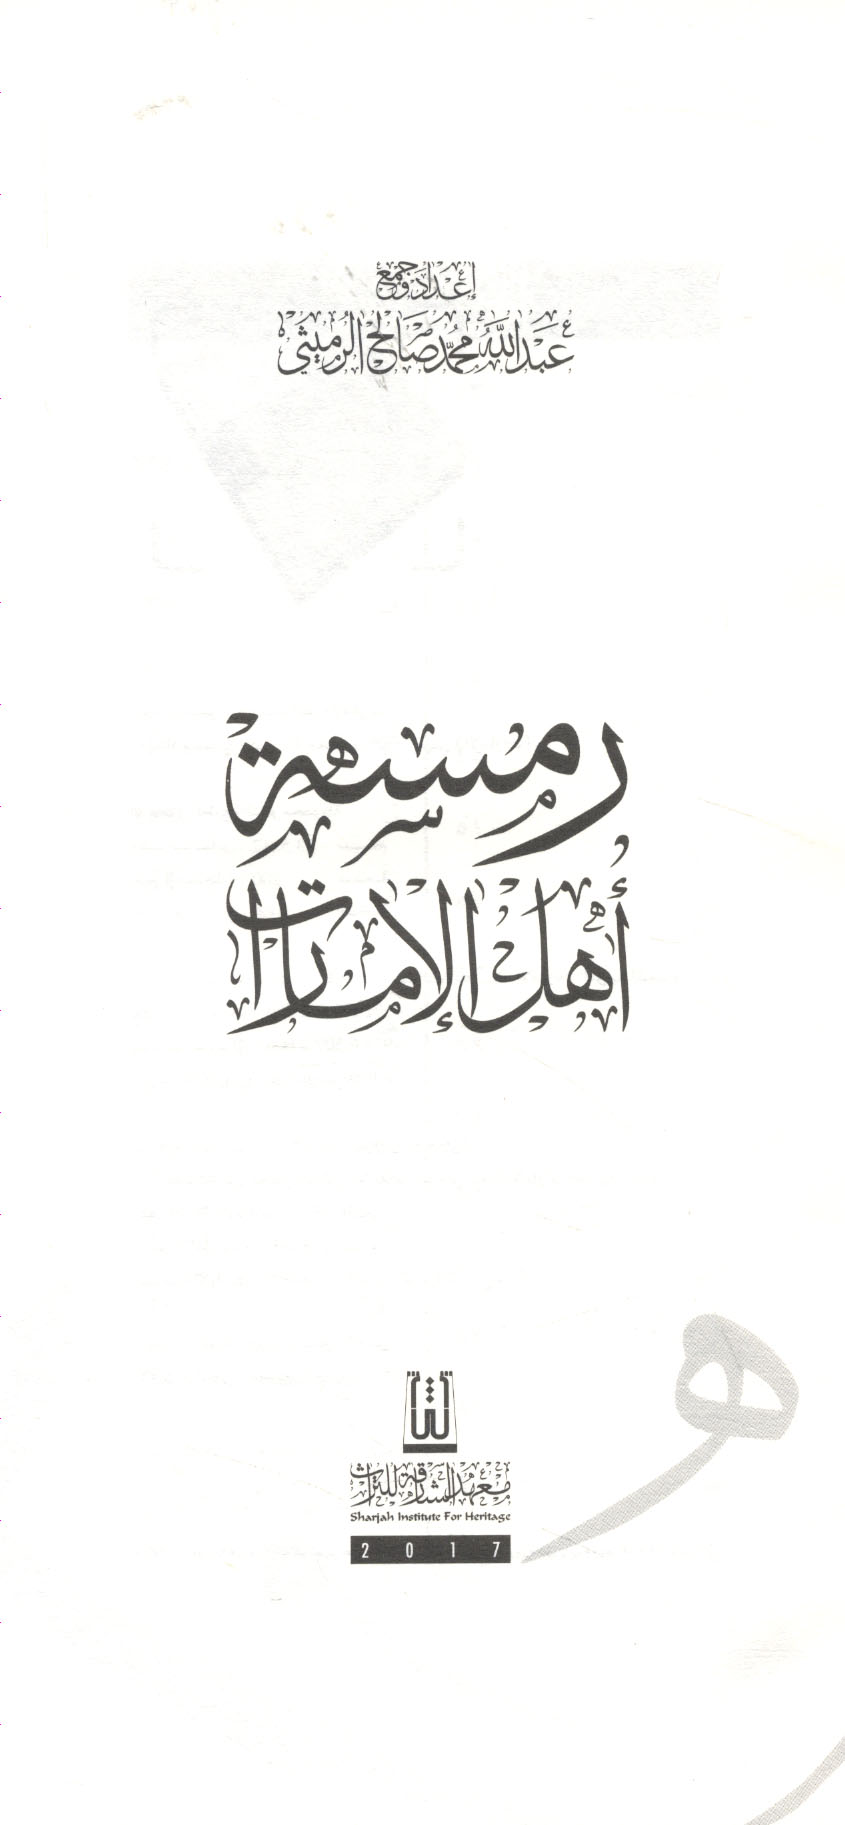 إعداد وجمع
عبدالله محمد صالح الرميثي
رمسة
أهل الإمارات
معهد الشارقة للتراث
Sharjah Institute For Heritage
2017